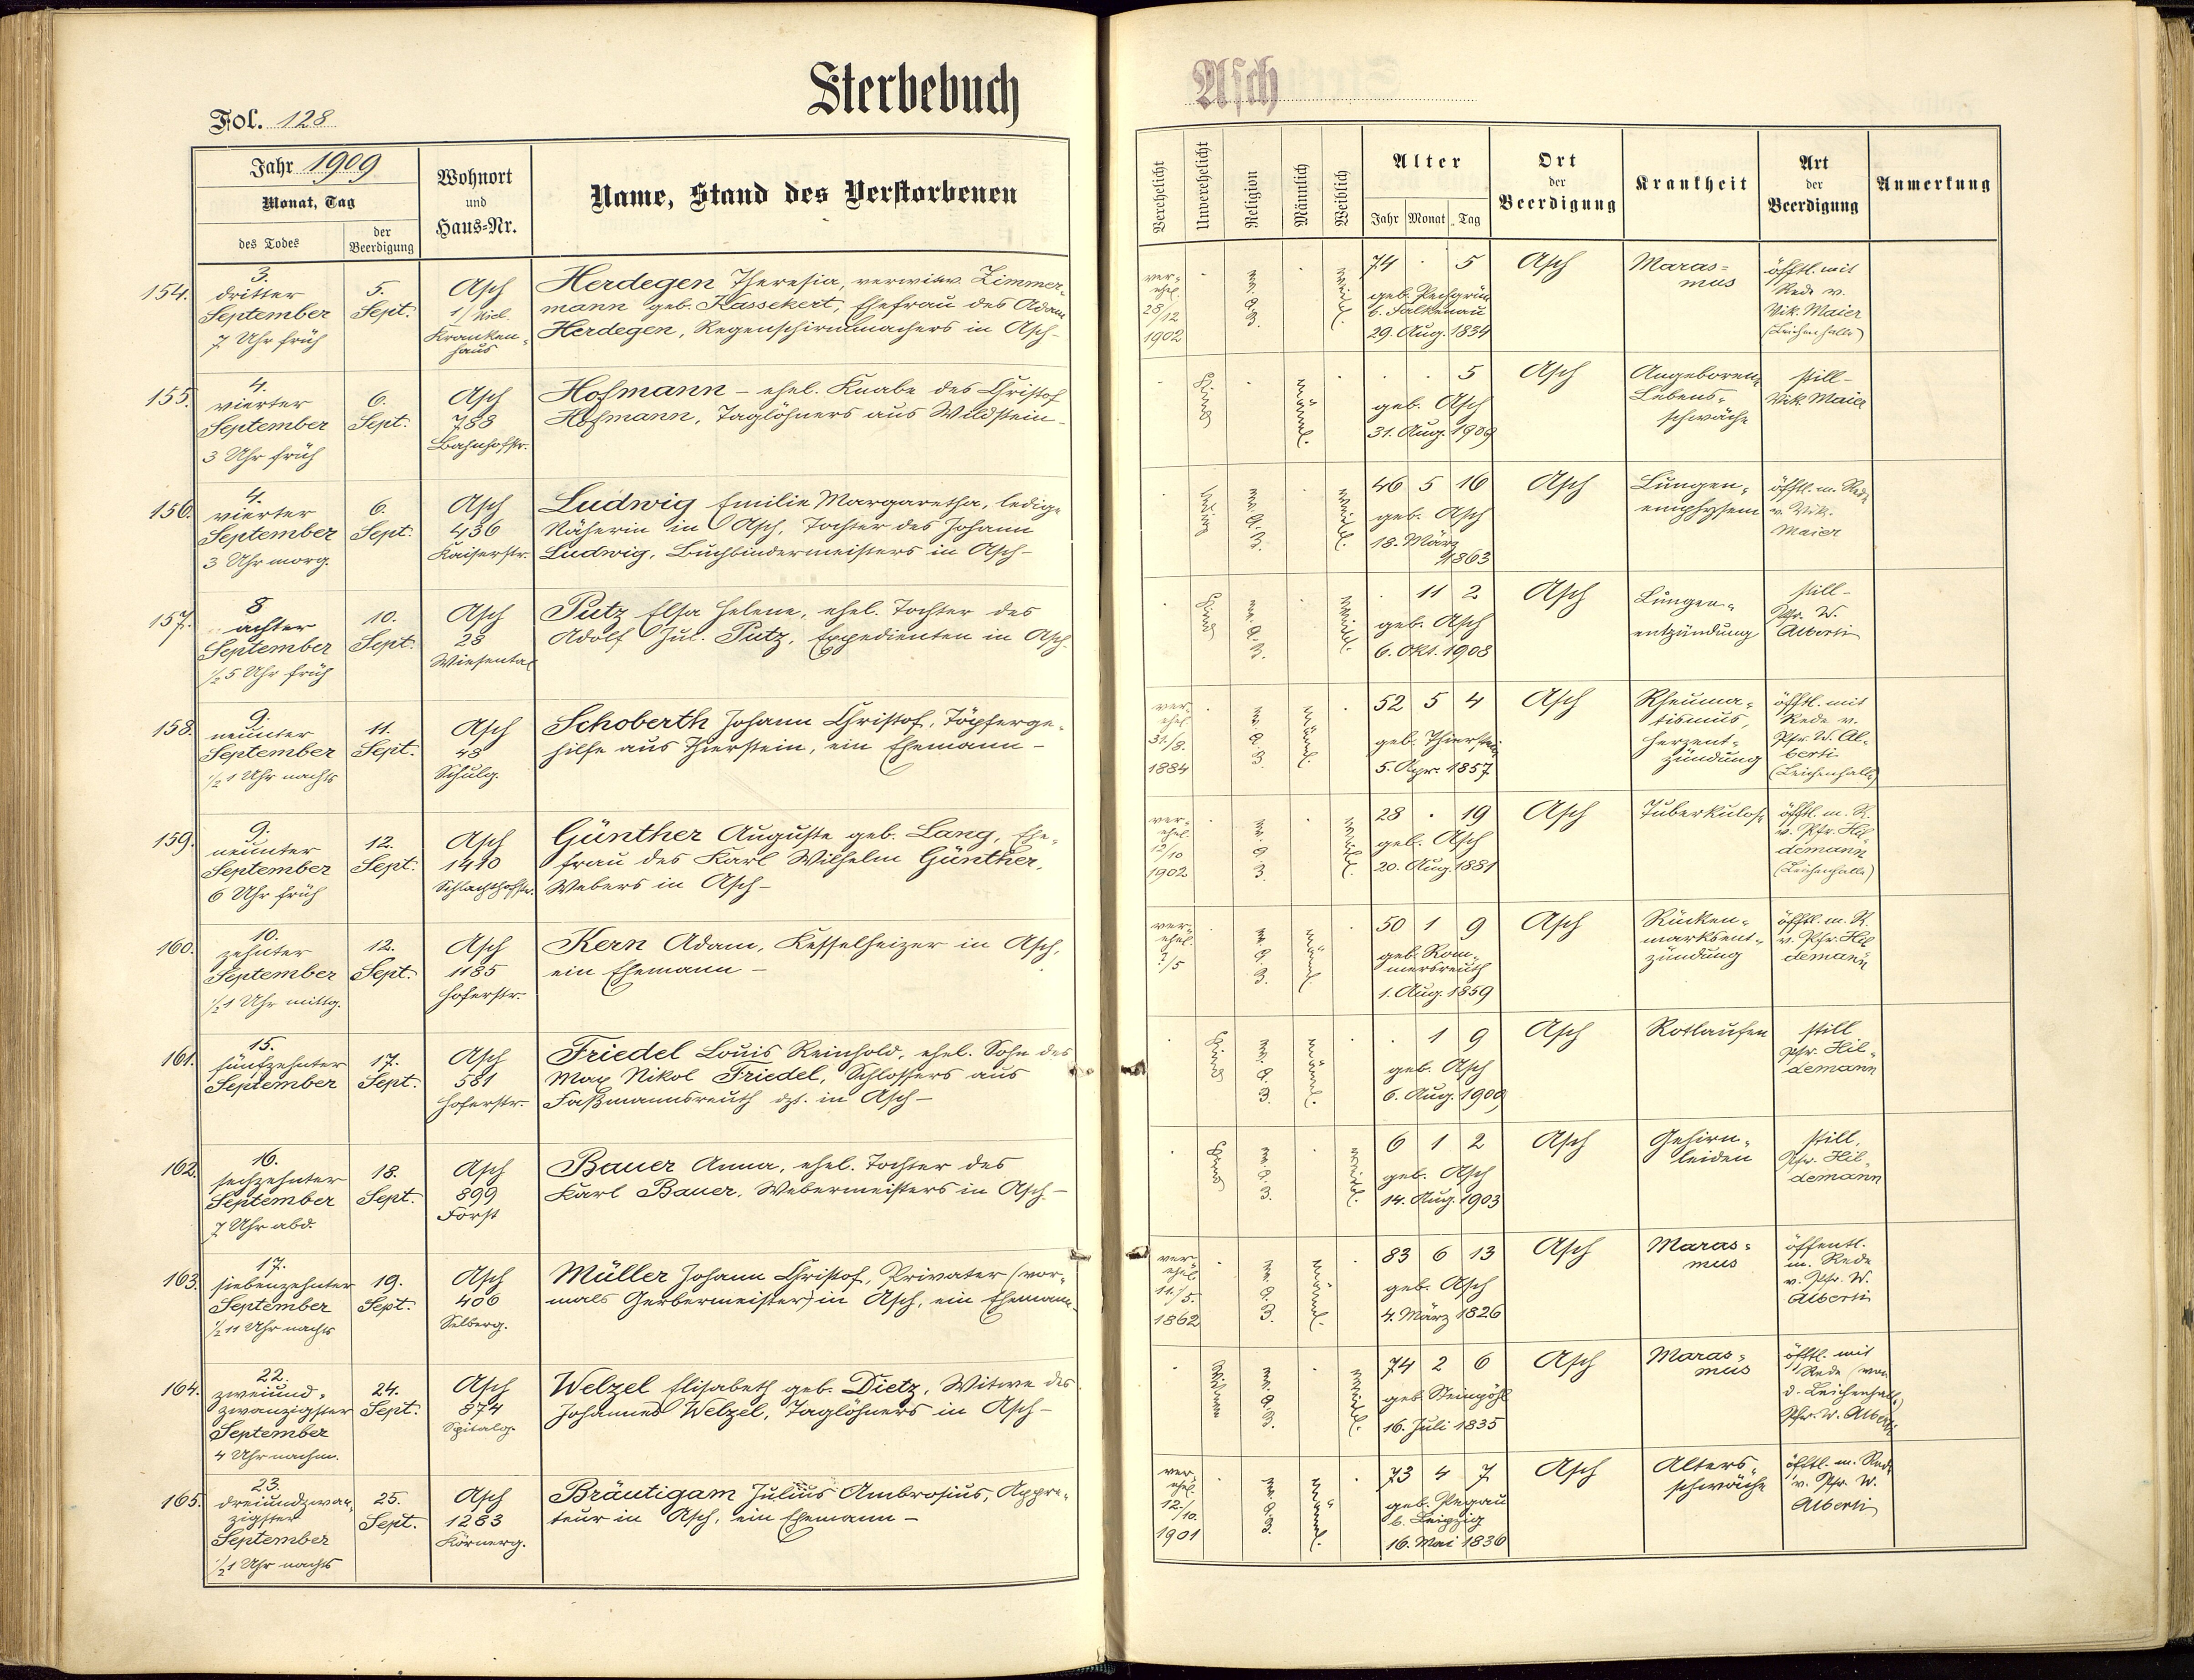 Sterbebuch
Asch
Fol. 128
Jahr 1909
Monat, Tag
des Todes
der Beerdigung
Wohnort
und
Haus-Nr.
Name, Stand des Verstorbenen
Verehelicht
Unverehelicht
Religion
Männlich
Weiblich
Alter
Jahr Monat Tag
Ort
der
Beerdigung
Krankheit
Art
der
Beerdigung
Anmerkung
154.
3.
dritter
September
7 Uhr früh
5.
Sept.
Asch
1/Nickl.
Kranken-
haus
Herdegen Theresia, verwitw. Zimmer-
mann geb. Kassekert, Ehefrau des Adam
Herdegen, Regenschirmmachers in Asch-
ver-
ehel.
28/12
1902
ev. A. B.
weibl.
74 . 5
geb. Pechgrün
b. Falkenau
29. Aug. 1834
Asch
Maras-
mus
öfftl. mit
Rede v.
Vik. Maier
(Leichenhalle)
155.
4.
vierter
September
3 Uhr früh
6.
Sept.
Asch
788
Bahnhofstr.
Hofmann - ehel. Knabe des Christof
Hofmann, Taglöhners aus Wildstein-
Kind
männl.
. . 5
geb. Asch
31. Aug. 1909
Asch
Angeborene
Lebens-
schwäche
still-
Vik. Maier
156.
4.
vierter
September
3 Uhr morg.
6.
Sept.
Asch
436
Kaiserstr.
Ludwig Emilie Margaretha, ledige
Näherin in Asch, Tochter des Johann
Ludwig, Buchbindermeisters in Asch-
ledig
ev. A. B.
weibl.
46 5 16
geb. Asch
18. März
1863
Asch
Lungen-
emphysem
öfftl. m. Rede
v. Vik.
Maier
157.
8
achter
September
1/2 5 Uhr früh
10.
Sept.
Asch
28
Wiesental
Putz Elsa Helene, ehel. Tochter des
Adolf Jul. Putz, Expedienten in Asch-
Kind
ev. A. B.
weibl.
. 11 2
geb. Asch
6. Okt. 1908
Asch
Lungen-
entzündung
still-
Pfr. W.
Alberti
158.
9.
neunter
September
1/2 1 Uhr nachts
11.
Sept.
Asch
48
Schulg.
Schoberth Johann Christof, Töpferge-
hilfe aus Thierstein, ein Ehemann-
ver-
ehel.
31./8.
1884
ev. A. B.
männl.
52 5 4
geb. Thierstein
5. Apr. 1857
Asch
Rheuma-
tismus,
Herzent-
zündung
öfftl. mit
Rede v.
Pfr. W. Al-
berti
(Leichenhalle)
159.
9.
neunter
September
6 Uhr früh
12.
Sept.
Asch
1410
Schlachthofstr.
Günther Auguste geb. Lang, Ehe-
frau des Karl Wilhelm Günther,
Webers in Asch-
ver-
ehel.
12/10
1902
ev. A. B.
weibl.
28 . 19
geb. Asch
20. Aug. 1881
Asch
Tuberkulose
öfftl. m. R.
v. Pfr. Hil-
demann
(Leichenhalle)
160.
10.
zehnter
September
1/2 1 Uhr mittg.
12.
Sept.
Asch
1185
Hoferstr.
Kern Adam, Kesselheizer in Asch,
ein Ehemann-
ver-
ehel.
?/5
ev. A. B.
männl.
50 1 9
geb. Rom-
mersreuth
1. Aug. 1859
Asch
Rücken-
marksent-
zündung
öfftl. m. R.
v. Pfr. Hil-
demann
161.
15.
fünfzehnter
September
17.
Sept.
Asch
581
Hoferstr.
Friedel Louis Reinhold, ehel. Sohn des
Max Nikol Friedel, Schlossers aus
Faßmannsreuth dzt. in Asch-
Kind
ev. A. B.
männl.
. 1 9
geb. Asch
6. Aug. 1909
Asch
Rotlaufen
still
Pfr. Hil-
demann
162.
16.
sechzehnter
September
7 Uhr abd.
18.
Sept.
Asch
899
Forst
Bauer Anna, ehel. Tochter des
Karl Bauer, Webermeisters in Asch-
Kind
ev. A. B.
weibl.
6 1 2
geb. Asch
14. Aug. 1903
Asch
Gehirn-
leiden
still,
Pfr. Hil-
demann
163.
17.
siebenzehnter
September
1/2 11 Uhr nachts
19.
Sept.
Asch
406
Selberg.
Müller Johann Christof, Privater (vor-
mals Gerbermeister) in Asch, ein Ehemann-
ver-
ehel.
11./5.
1862
ev. A. B.
männl.
83 6 13
geb. Asch
4. März 1826
Asch
Maras-
mus
öffentl.
m. Rede
v. Pfr. W.
Alberti
164.
22.
zweiund-
zwanzigster
September
4 Uhr nachm.
24.
Sept.
Asch
874
Spitalg.
Welzel Elisabeth geb. Dietz, Witwe des
Johannes Welzel, Taglöhners in Asch-
Witwe
ev. A. B.
weibl.
74 2 6
geb. Steinpöhl
16. Juli 1835
Asch
Maras-
mus
öfftl. mit
Rede (von
d. Leichenhalle)
Pfr. W. Alberti
165.
23.
dreiundzwan-
zigster
September
1/2 1 Uhr nachts
25.
Sept.
Asch
1283
Körnerg.
Bräutigam Julius Ambrosius, Appre-
teur in Asch, ein Ehemann-
ver-
ehel.
12./10.
1901
ev. A. B.
männl.
73 4 7
geb. Pegau
b. Leipzig
16. Mai 1836
Asch
Alters-
schwäche
öfftl. m. Rede
v. Pfr. W.
Alberti